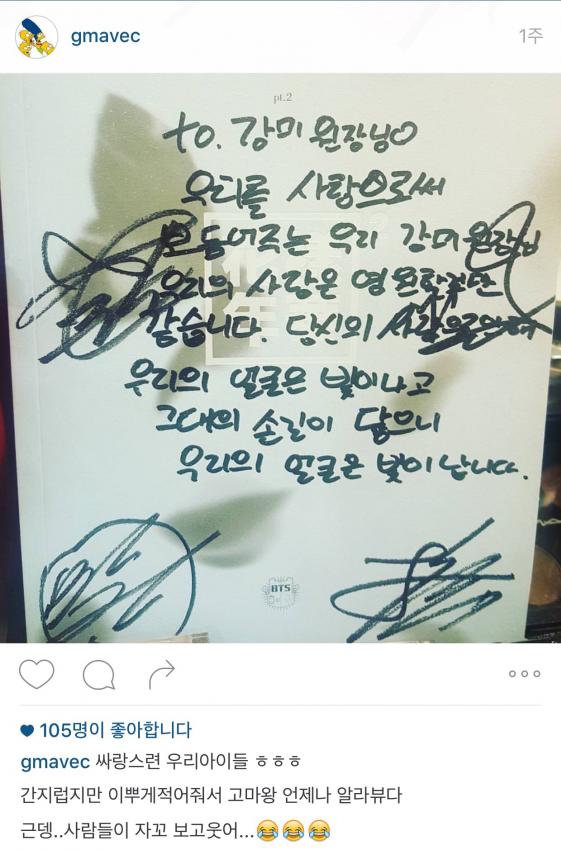 gmavec
1주
pt.2
to. 강미 원장님
우리를 사랑으로써
보듬어주는 우리 강미 원장님
우리의 사랑은 영원할것만
같습니다. 당신의 사랑으로인해
우리의 얼굴은 빛이나고
그대의 손길이 닿으니
우리의 얼굴은 빛이 납니다.
BTS
105명이 좋아합니다
gmavec 싸랑스련 우리아이들 ㅎㅎㅎ
간지럽지만 이뿌게적어줘서 고마왕 언제나 알라뷰다
근뎅..사람들이 자꼬 보고웃어...😂😂😂